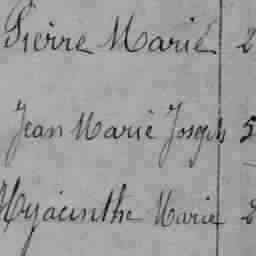 Pierre Marie 2
Jean Marie Joseph 5
Hyacinthe Marie 2